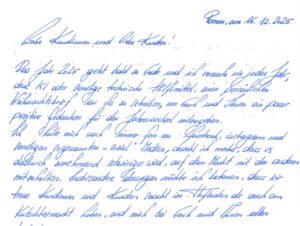 Pomau, am 16.12.2025
Liebe Kundinnen und liebe Kunden!
Das Jahr 2025 geht bald zu Ende und ich versuche wie jedes Jahr,
ohne KI oder sonstige technische Hilfsmittel, einen persönlichen
Weihnachtsbrief an Sie zu schreiben, um Euch und Ihnen ein paar
positive Gedanken für den Jahreswechsel mitzugeben.
Ich halte mich auch immer fern von Facebook, Instagram und
sonstigen sogenannten „sozial" Medien, obwohl ich merke, dass es
dadurch zunehmend schwieriger wird, auf dem Markt mit den anderen
mitzuhalten. Insbesondere deswegen möchte ich betonen, dass wir
treue Kundinnen und Kunden sowohl im als auch am
haben, und mich bei Euch und Ihnen allen